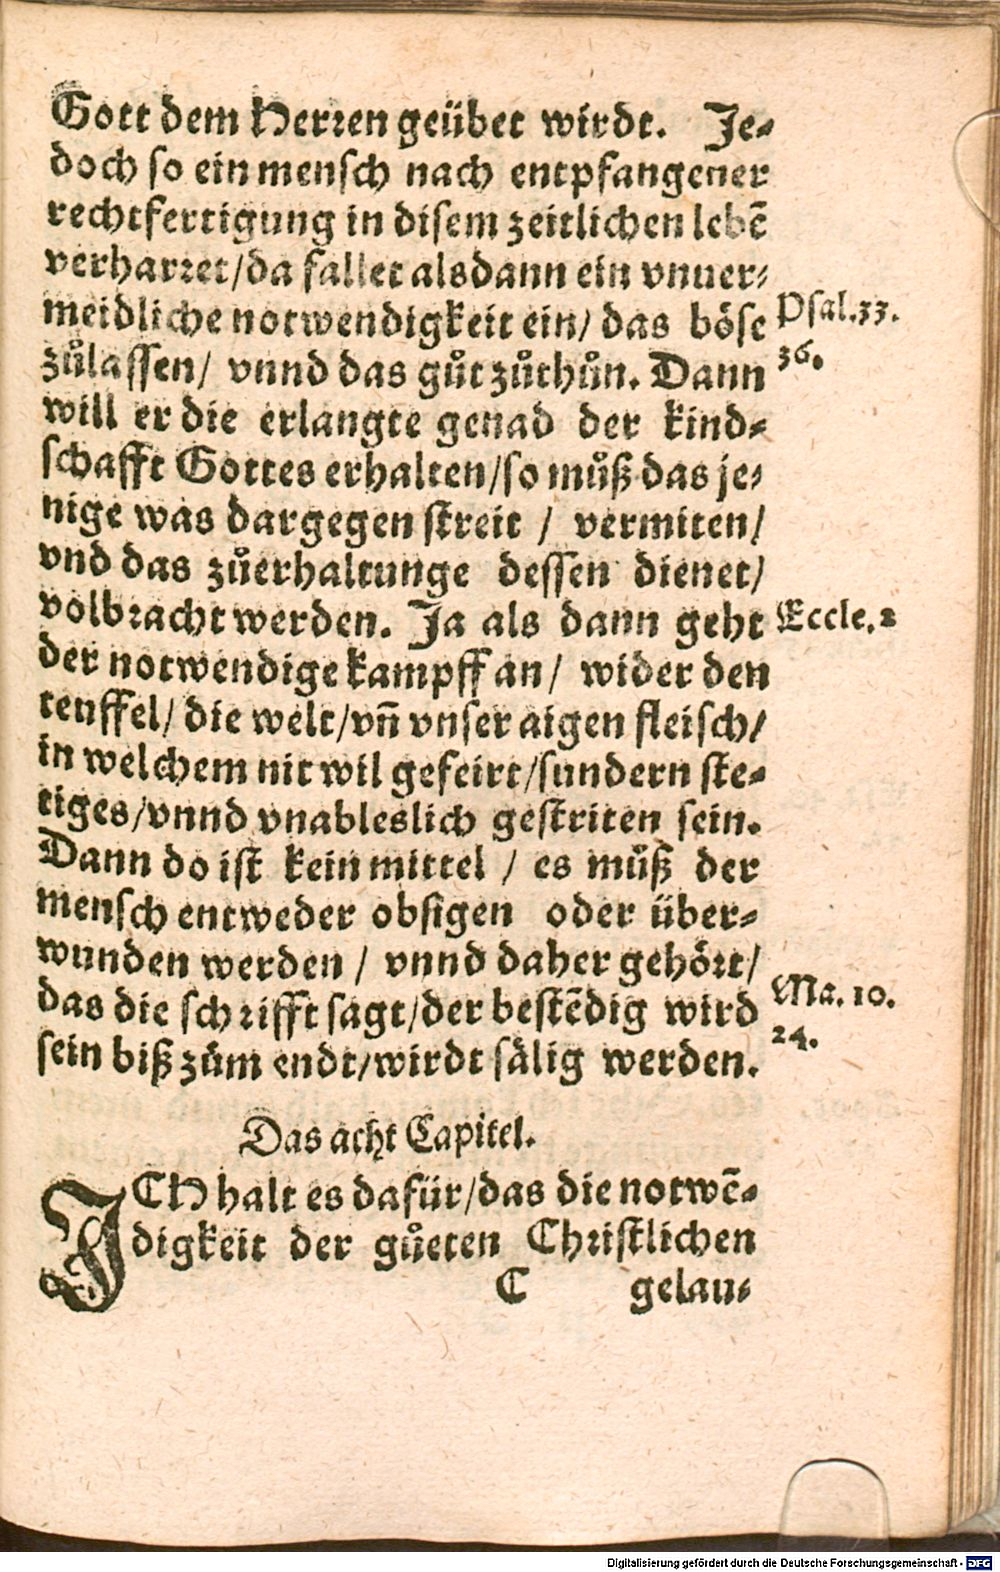 Gott dem Herren geübet wirdt. Je-
doch so ein mensch nach entpfangener
rechtfertigung in disem zeitlichen lebē
verharret/da fallet alsdann ein vnuer-
meidliche notwendigkeit ein/ das böse
Psal.33.
zůlassen/ vnnd das gůt zůthůn. Dann
36.
will er die erlangte genad der kind-
schafft Gottes erhalten/so můß das je-
nige was dargegen streit / vermiten/
vnd das zůerhaltunge dessen dienet/
volbracht werden. Ja als dann geht
Eccle.2
der notwendige kampff an/ wider den
teuffel/ die welt/vñ vnser aigen fleisch/
in welchem nit wil gefeirt/sundern ste-
tiges/vnnd vnableslich gestriten sein.
Dann do ist kein mittel / es můß der
mensch entweder obsigen oder über-
wunden werden / vnnd daher gehört/
das die schrifft sagt/der bestēdig wird
Ma. 10.
24.
sein biß zům endt/wirdt sälig werden.
Das acht Capitel.
ICH halt es dafür/das die notwē-
digkeit der gůeten Christlichen
C gelau-
Digitalisierung gefördert durch die Deutsche Forschungsgemeinschaft - DFG